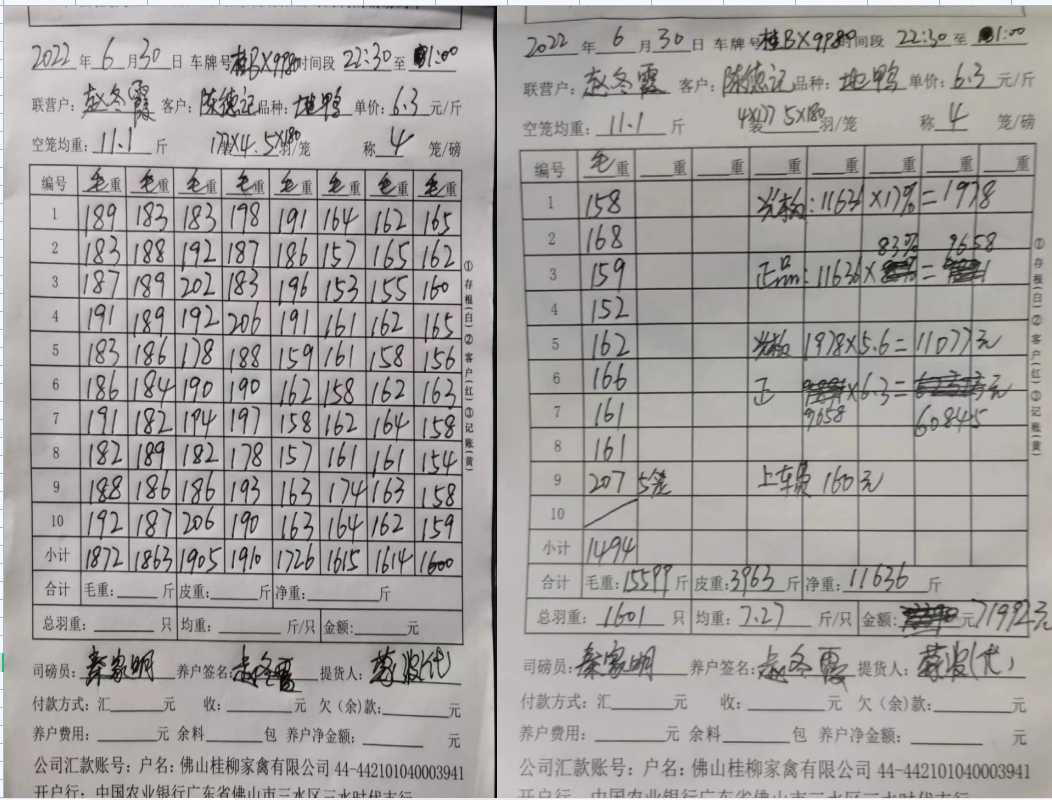 2022年6月30日 车牌号桂BX9980时间段22:30至1:00
联营户:赵冬霞 客户:陈德记 品种:地鸭 单价:6.3元/斤
空笼均重:11.1斤 177X4.5X180羽/笼 称4笼/磅
编号 毛重 毛重 毛重 毛重 毛重 毛重 毛重 毛重
1 189 183 183 198 191 164 162 165
2 183 188 192 187 186 157 165 162
3 187 189 202 183 196 153 155 160
4 191 189 192 206 191 161 162 165
5 183 186 178 188 159 161 158 156
6 186 184 190 190 162 158 162 163
7 191 182 194 197 158 162 164 158
8 182 189 182 178 157 161 161 154
9 188 186 186 193 163 174 163 158
10 192 187 206 190 163 164 162 159
小计 1872 1863 1905 1910 1726 1615 1614 1600
合计 毛重:斤 皮重:斤 净重:斤
总羽重:只 均重:斤/只 金额:元
司磅员:秦家明 养户签名:赵冬霞 提货人:(代)
付款方式:汇元 收:元 欠(余)款:元
养户费用:元 余料包 养户净金额:元
公司汇款账号:户名:佛山桂柳家禽有限公司 44-442101040003941
开户行:中国农业银行广东省佛山市三水区三水时代支行
①存根(白)②客户(红)③记账(黄)
2022年6月30日 车牌号桂BX9980时间段22:30至1:00
联营户:赵冬霞 客户:陈德记 品种:地鸭 单价:6.3元/斤
空笼均重:11.1斤 4X177 5X180羽/笼 称4笼/磅
编号 毛重 重 重 重 重 重 重 重
1 158 :11636X17%=1978
2 168 83% 9658
3 159 正品:11636X=
4 152
5 162 1978X5.6=11077元
6 166 正 X6.3=元
7 161 9658 60845
8 161
9 207 5笼 上车费 160元
10
小计 1494
合计 毛重:15599斤 皮重:3963斤 净重:11636斤
总羽重:1601只 均重:7.27斤/只 金额:元71992元
司磅员:秦家明 养户签名:赵冬霞 提货人:(代)
付款方式:汇元 收:元 欠(余)款:元
养户费用:元 余料包 养户净金额:元
公司汇款账号:户名:佛山桂柳家禽有限公司 44-442101040003941
开户行:中国农业银行广东省佛山市三水区三水时代支行
①存根(白)②客户(红)③记账(黄)